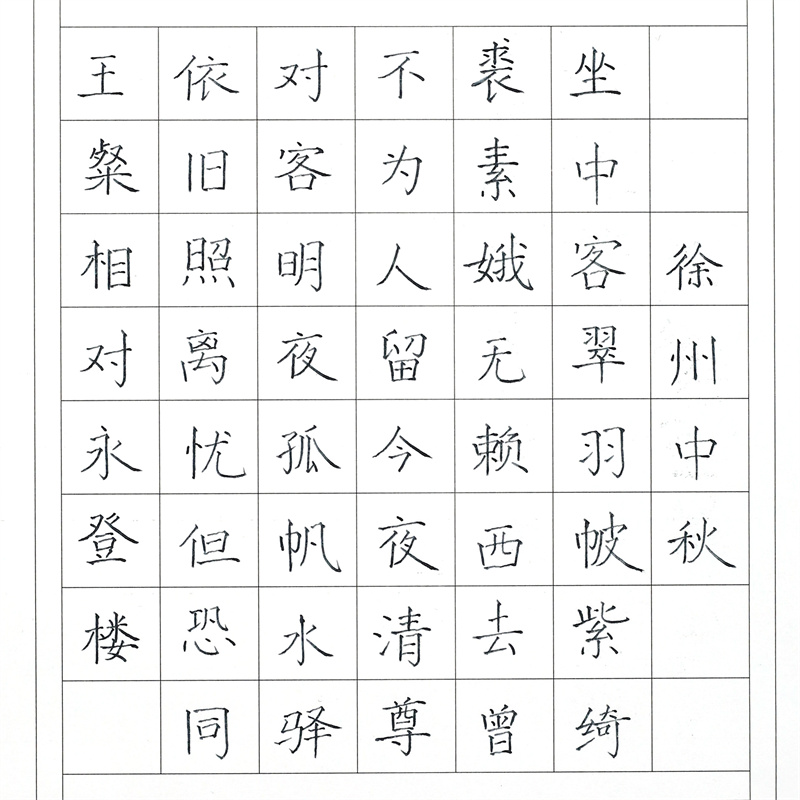 徐州中秋
坐中客翠羽帔紫绮
裘素娥无赖西去曾
不为人留今夜清尊
对客明夜孤帆水驿
依旧照离忧但恐同
王粲相对永登楼